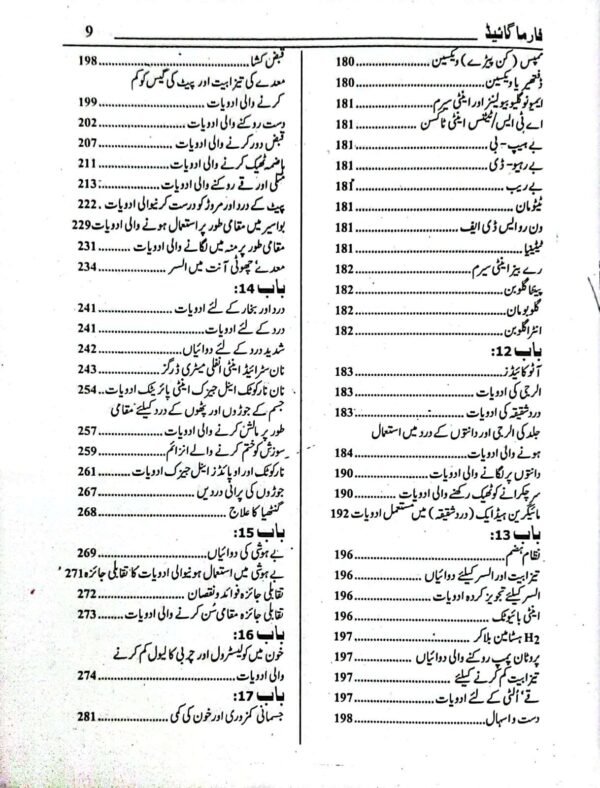 فارما گائیڈ 9
ممپس (کن پیڑے) ویکسین ..... 180
ڈفتھیریا ویکسین ..... 180
ایمیونوگلوبیولینز اور اینٹی سیرم ..... 181
اے ٹی ایس/ٹیٹنس اینٹی ٹاکسن ..... 181
بے ہیپ - بی ..... 181
بے رہیو - ڈی ..... 181
بے ریب ..... 181
ٹیٹومان ..... 181
ون رو ایس ڈی ایف ..... 181
ٹیٹینیا ..... 181
رے بیز اینٹی سیرم ..... 182
پینٹا گلوبن ..... 182
گلوبومان ..... 182
انٹرا گلوبن ..... 182
باب 12:
آٹوکائیڈز ..... 183
الرجی کی ادویات ..... 183
درد شقیقہ کی ادویات ..... 183
جلد کی الرجی اور دانتوں کے درد میں استعمال
ہونے والی ادویات ..... 184
دانتوں پر لگانے والی ادویات ..... 190
سر چکرانے کو ٹھیک رکھنے والی ادویات ..... 190
مائیگرین ہیڈ ایک (درد شقیقہ) میں مستعمل ادویات 192
باب 13:
نظام ہضم ..... 196
تیزابیت اور السر کیلئے دوائیاں ..... 196
السر کیلئے تجویز کردہ ادویات ..... 196
اینٹی بائیوٹک ..... 196
H2 ہسٹامین بلاکر ..... 197
پروٹان پمپ روکنے والی دوائیاں ..... 197
تیزابیت کم کرنے کیلئے ..... 197
قے‘ اُلٹی کے لئے ادویات ..... 197
دست و اسہال ..... 198
قبض کشا ..... 198
معدے کی تیزابیت اور پیٹ کی گیس کو کم
کرنے والی ادویات ..... 199
دست روکنے والی ادویات ..... 202
قبض دور کرنے والی ادویات ..... 207
ہاضمہ ٹھیک کرنے والی ادویات ..... 211
متلی اور قے روکنے والی ادویات ..... 213
پیٹ کے درد اور مروڑ کو درست کرنیوالی ادویات .. 222
بواسیر میں مقامی طور پر استعمال ہونے والی ادویات 229
مقامی طور پر منہ میں لگانے والی ادویات ..... 231
معدے‘ چھوٹی آنت میں السر ..... 234
باب 14:
درد اور بخار کے لئے ادویات ..... 241
درد کے لئے ادویات ..... 241
شدید درد کے لئے دوائیاں ..... 242
نان سٹرائیڈ اینٹی انفلی میٹری ڈرگز ..... 243
نان نارکوٹک اینل جیزک اینٹی پائریٹک ادویات .. 254
جسم کے جوڑوں اور پٹھوں کے درد کیلئے مقامی
طور پر مالش کرنے والی ادویات ..... 257
سوزش کو ختم کرنے والے انزائم ..... 259
نارکوٹک اور اوپائڈز اینل جیزک ادویات ..... 261
جوڑوں کی پرانی دردیں ..... 267
گنٹھیا کا علاج ..... 268
باب 15:
بے ہوشی کی دوائیاں ..... 269
بے ہوشی میں استعمال ہونیوالی ادویات کا تقابلی جائزہ 271
تقابلی جائزہ فوائد و نقصان ..... 272
تقابلی جائزہ مقامی سُن کرنے والی ادویات ..... 273
باب 16:
خون میں کولیسٹرول اور چربی کا لیول کم کرنے
والی ادویات ..... 274
باب 17:
جسمانی کمزوری اور خون کی کمی ..... 281